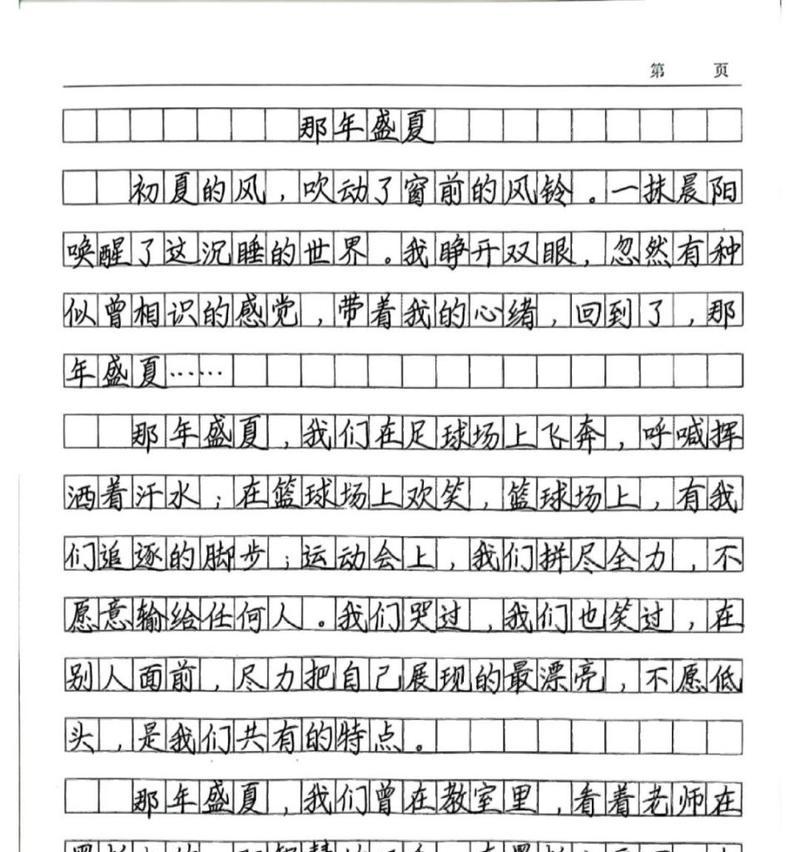 第 页
那年盛夏
初夏的风，吹动了窗前的风铃。一抹晨阳
唤醒了这沉睡的世界。我睁开双眼，忽然有种
似曾相识的感觉，带着我的心绪，回到了，那
年盛夏……
那年盛夏，我们在足球场上飞奔，呼喊挥
洒着汗水；在篮球场上欢笑，篮球场上，有我
们追逐的脚步；运动会上，我们拼尽全力，不
愿意输给任何人。我们哭过，我们也笑过，在
别人面前，尽力把自己展现的最漂亮，不愿低
头，是我们共有的特点。
那年盛夏，我们曾在教室里，看着老师在